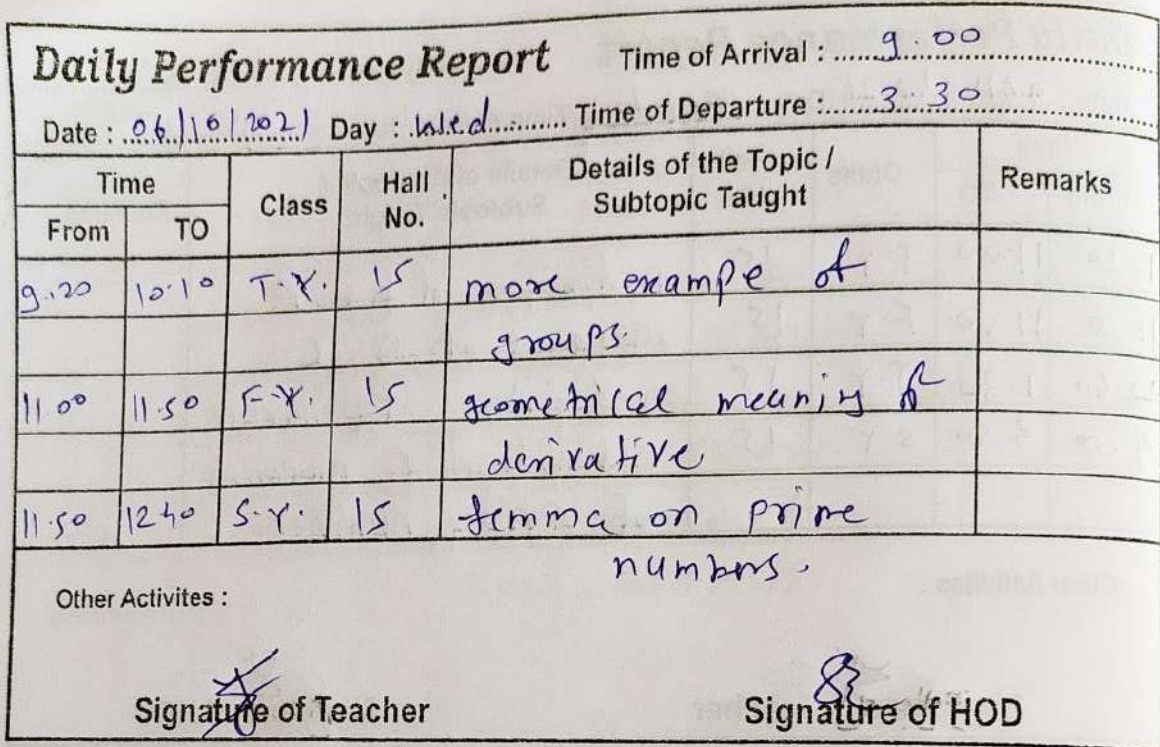 Daily Performance Report Time of Arrival : 9.00
Date : 06/10/2021 Day : Wed Time of Departure : 3.30
Time Class Hall No. Details of the Topic / Subtopic Taught Remarks
From TO
9.20 10.10 T.Y. 15 more exampe of
groups.
11.00 11.50 F.Y. 15 geometrical meaning of
derivative
11.50 12.40 S.Y. 15 lemma on prime
numbers.
Other Activites :
Signature of Teacher Signature of HOD